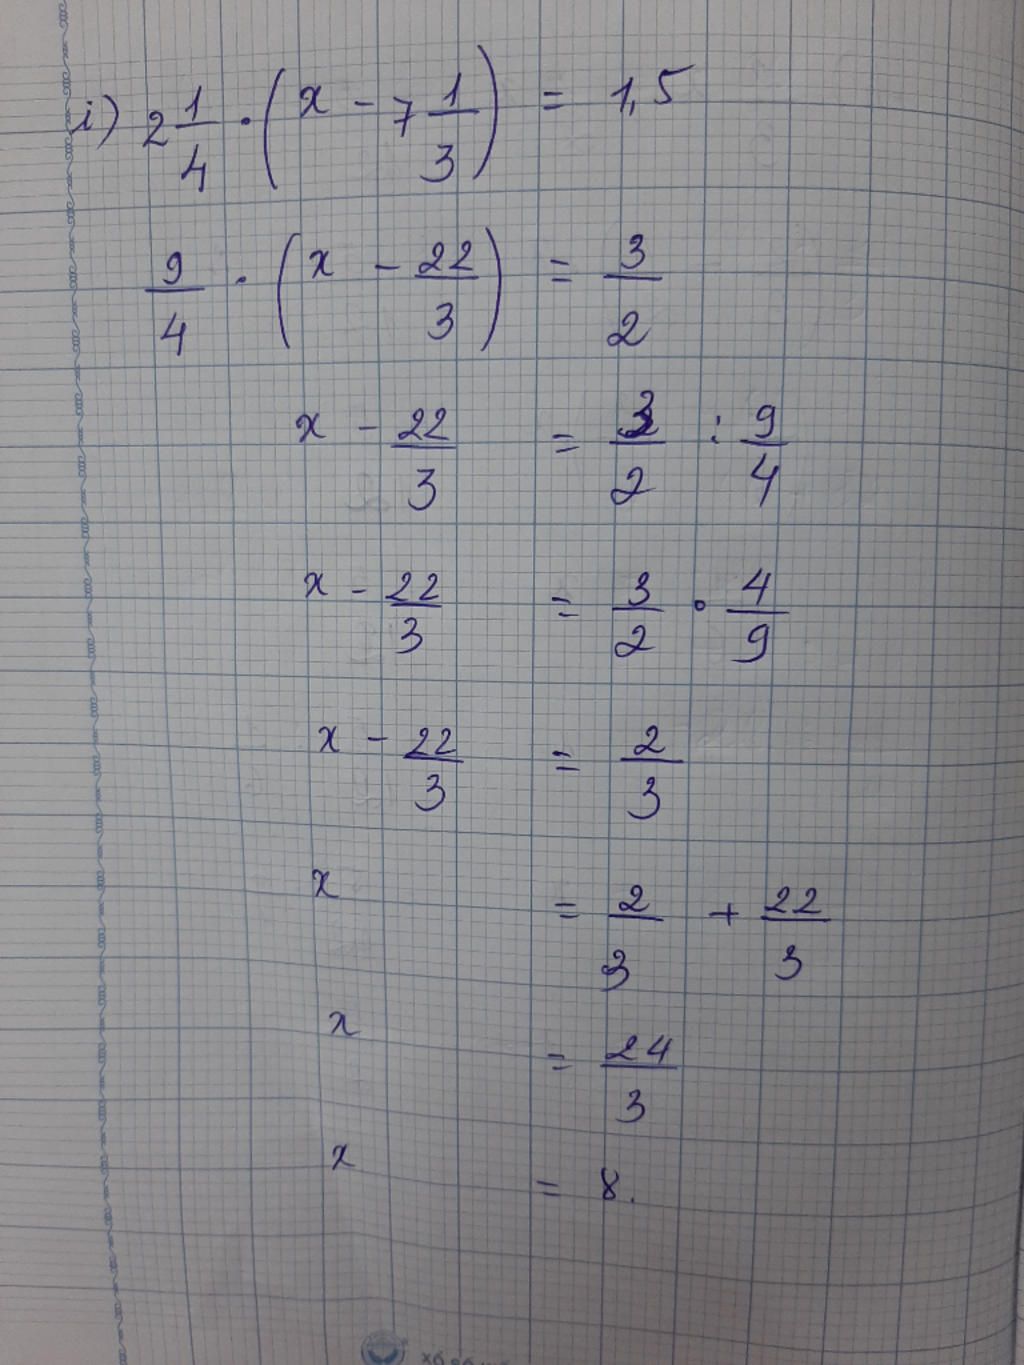 i) 2 1/4 · (x - 7 1/3) = 1,5
9/4 · (x - 22/3) = 3/2
x - 22/3 = 3/2 : 9/4
x - 22/3 = 3/2 · 4/9
x - 22/3 = 2/3
x = 2/3 + 22/3
x = 24/3
x = 8.